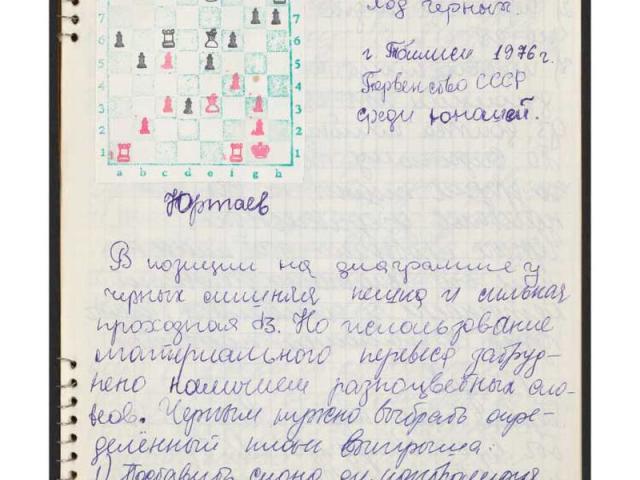 Ход черных.
г. Тбилиси 1976 г.
Первенство СССР
среди юношей.
7 7
6 6
5 5
4 4
3 3
2 2
1 1
a b c d e f g h
Юртаев
В позиции на диаграмме у
черных лишняя пешка и сильная
проходная d3. Но использование
материального перевеса затруд-
нено наличием разноцветных сло-
нов. Черным нужно выбрать опре-
делённый план выигрыша:
1) Поставить слона